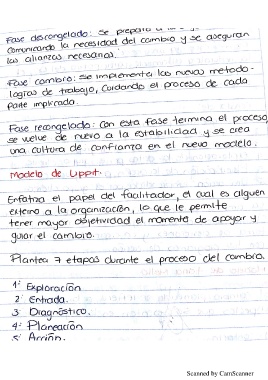 Fase descongelado: se prepara
comunicando la necesidad del cambio y se aseguran
las alianzas necesarias.
Fase cambio: se implementa las nuevas metodo-
logias de trabajo, cuidando el proceso de cada
parte implicada.
Fase recongelado: con esta fase termina el proceso
se vuelve de nuevo a la estabilidad y se crea
una cultura de confianza en el nuevo modelo.
Modelo de Lippit.
Enfatiza el papel del facilitador, el cual es alguien
externo a la organización, lo que le permite
tener mayor objetividad el momento de apoyar y
guiar el cambio.
Plantea 7 etapas durante el proceso del cambio.
1: Exploración
2: Entrada.
3: Diagnóstico.
4: Planeación
5: Acción.
Scanned by CamScanner